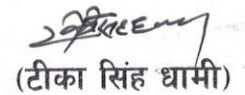 (टीका सिंह धामी)